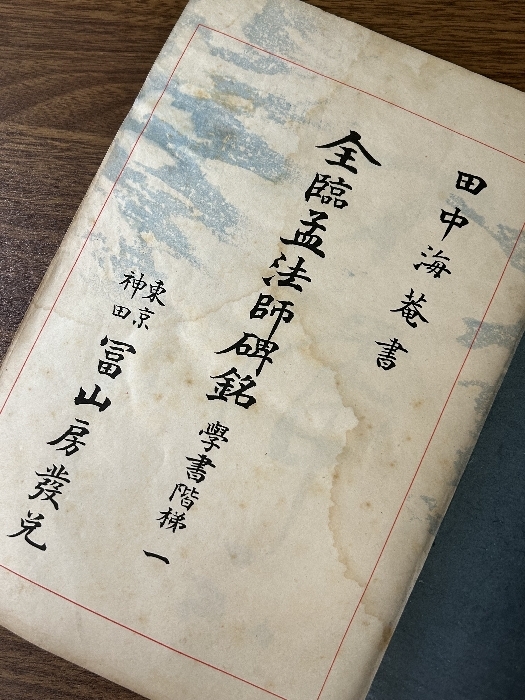 田中海菴書
全臨孟法師碑銘 學書階梯 一
東京神田 冨山房發兌